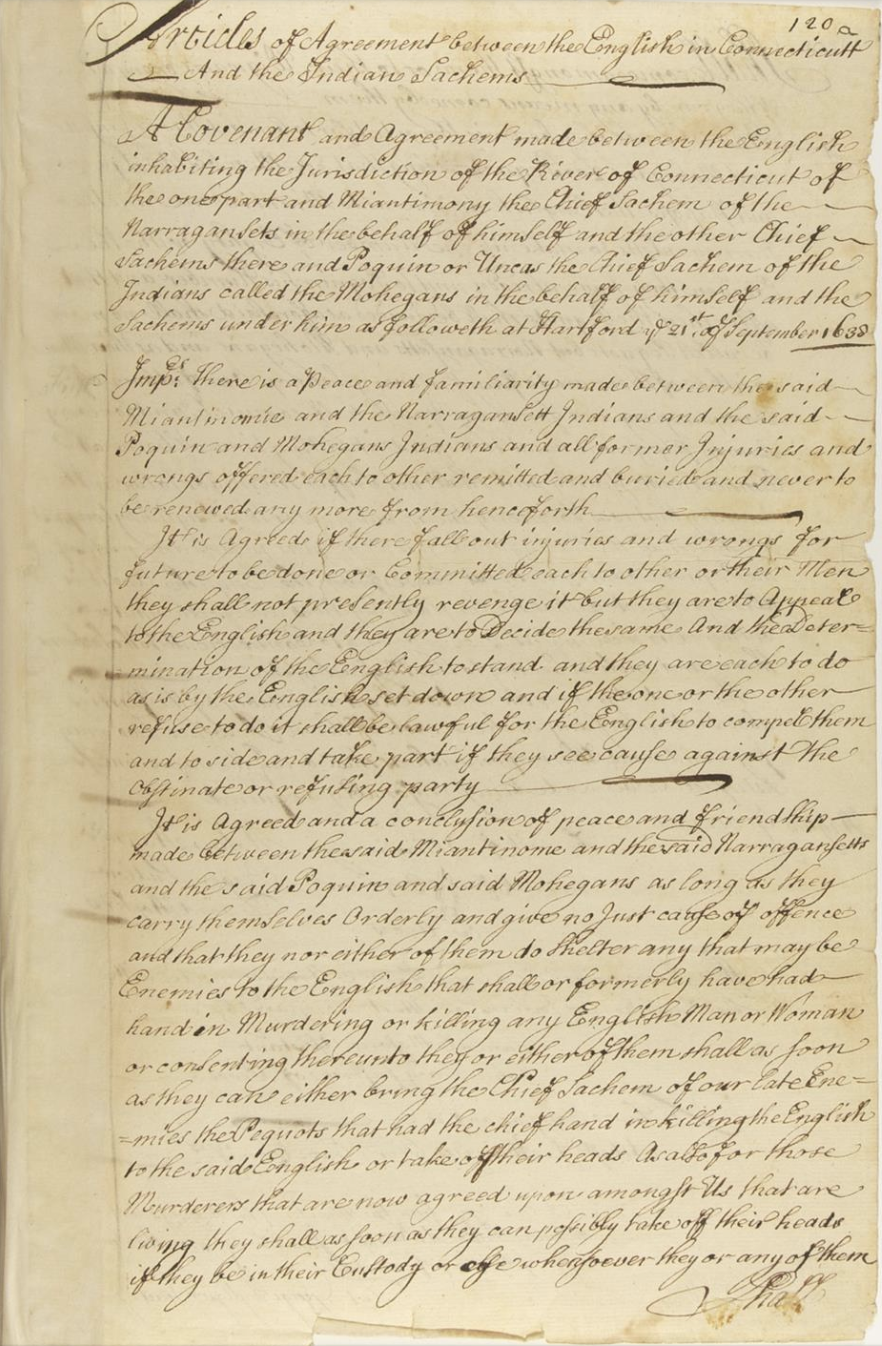 120a
Articles of Agreement between the English in Connecticutt
And the Indian Sachems
A Covenant and Agreement made between the English
inhabiting the Jurisdiction of the River of Connecticut of
the one part and Miantimony the Chief Sachem of the
Narragansets in the behalf of himself and the other Chief
Sachems there and Poquin or Uncas the Chief Sachem of the
Indians called the Mohegans in the behalf of himself and the
Sachems under him as followeth at Hartford ye 21st. of September 1638
Imprs. There is a Peace and familiarity made between the said
Miantinomie and the Narragansett Indians and the said
Poquin and Mohegans Indians and all former Injuries and
wrongs offered each to other remitted and buried and never to
be renewed any more from henceforth
It is Agreed if there fall out injuries and wrongs for
future to be done or Committed each to other or their Men
they shall not presently revenge it but they are to Appeal
to the English and they are to Decide the same And the Deter=
mination of the English to stand and they are each to do
as is by the English set down and if the one or the other
refuse to do it shall be lawful for the English to compel them
and to side and take part if they see cause against the
Obstinate or refusing party
It is Agreed and a conclusion of peace and friendship
made between the said Miantinome and the said Narragansetts
and the said Poquin and said Mohegans as long as they
carry themselves Orderly and give no Just cause of offence
and that they nor either of them do Shelter any that may be
Enemies to the English that shall or formerly have had
hand in Murdering or killing any English Man or Woman
or consenting thereunto they or either of them shall as soon
as they can either bring the Chief Sachem of our late Ene=
=mies the Pequots that had the chief hand in killing the English
to the said English or take off their heads As also for those
Murderers that are now agreed upon amongst Us that are
living they shall as soon as they can possibly take off their heads
if they be in their Custody or else whensoever they or any of them
Shall